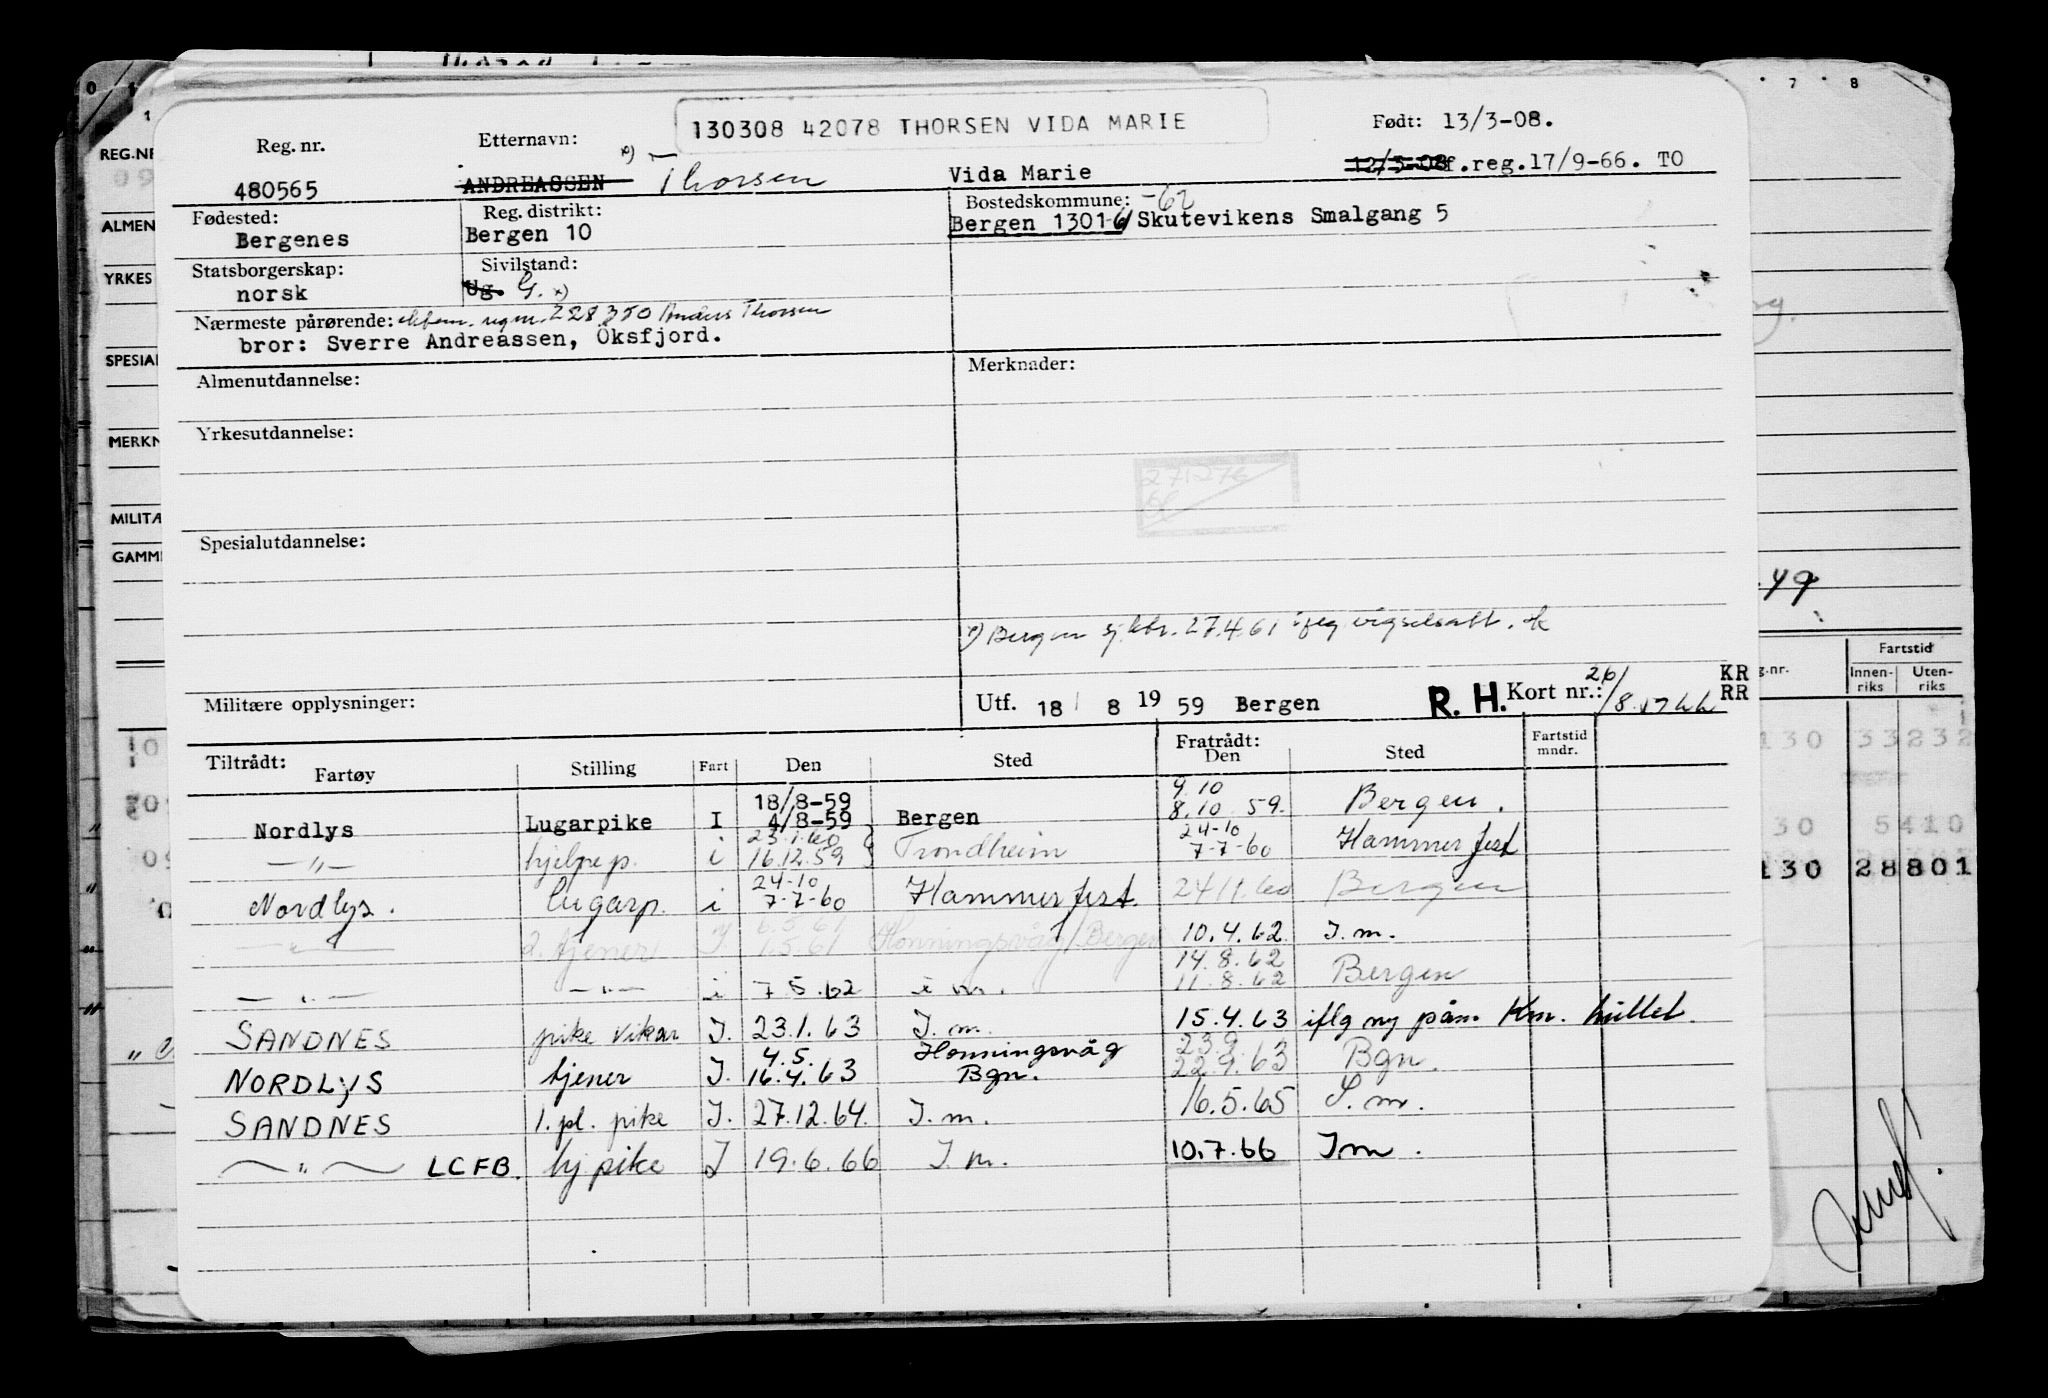 130308 42078 THORSEN VIDA MARIE
Født: 13/3-08.
Reg. nr. Etternavn:
480565 ANDREASSEN x) Thorsen Vida Marie 12/3-08 f.reg.17/9-66. TO
Fødested: Reg. distrikt: Bostedskommune: -62
Bergenes Bergen 10 Bergen 1301-61 Skutevikens Smalgang 5
Statsborgerskap: Sivilstand:
norsk Ug. G. x)
Nærmeste pårørende: ektem. reg nr. 228350 Anders Thorsen
bror: Sverre Andreassen, Öksfjord.
Almenutdannelse: Merknader:
Yrkesutdannelse:
Spesialutdannelse:
x) Bergen sj.ktr. 27.4.61 iflg vigselsatt.
Militære opplysninger: Utf. 18/ 8 19 59 Bergen R. H. Kort nr.: 26/8 KR RR
Tiltrådt: Fratrådt: Fartstid mndr.
Fartøy Stilling Fart Den Sted Den Sted
Nordlys Lugarpike I 18/8-59 4/8-59 Bergen 9.10 8.10.59. Bergen.
—"— hjelpep. i 23.1.60 16.12.59 } Trondheim 24-10 7-7-60 Hammerfest
Nordlys. lugarp. i 24-10 7-7-60 Hammerfest. 24/1.60 Bergen
—"— 2. tjener I 6.5.61 1.5.61 Honningsvåg/Bergen 10.4.62 I.m.
—"— —"— i 7.5.62 i m. 14.8.62 11.8.62 Bergen
SANDNES pike vikar I. 23.1.63 I.m. 15.4.63 iflg ny påm. Km. hullet.
NORDLYS tjener I. 4.5. 16.4.63 Honningsvåg Bgn. 23.9. 22.9.63 Bgn.
SANDNES 1. pl. pike I. 27.12.64. I.m. 16.5.65 I.m.
—"— LCFB. hj pike I 19.6.66 I.m. 10.7.66 I m.
REG.NR
ALMEN
YRKES
SPESIAL
MERKN
MILITÆ
GAMME
7 8
49
g.nr. Fartstid
Innen-riks Uten-riks
130 33232
30 5410
130 28801